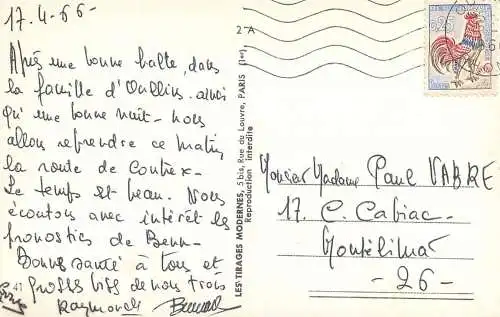 17.4.66-
Après une bonne halte, dans
la famille d'Oullins. ainsi
qu'une bonne nuit - nous
allons reprendre ce matin,
la route de Contrex-
Le temps est beau. Nous
écoutons avec intérêt les
pronostics de Benn-
Bonne santé à tous et
grosses bises de nous trois
Raymonde Bernard
41
2-A
LES TIRAGES MODERNES, 5bis, Rue du Louvre, PARIS (1er)
Reproduction interdite
0,25
Monsieur Madame Paul VABRE
17. C. Cabiac-
Montélimar
-26-